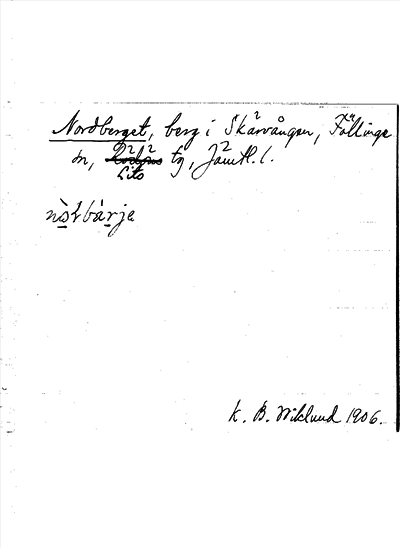 Nordberget, berg i Skärvången, Föllinge
sn, Lits tg, Jämtl. l.
K. B. Wiklund 1906.